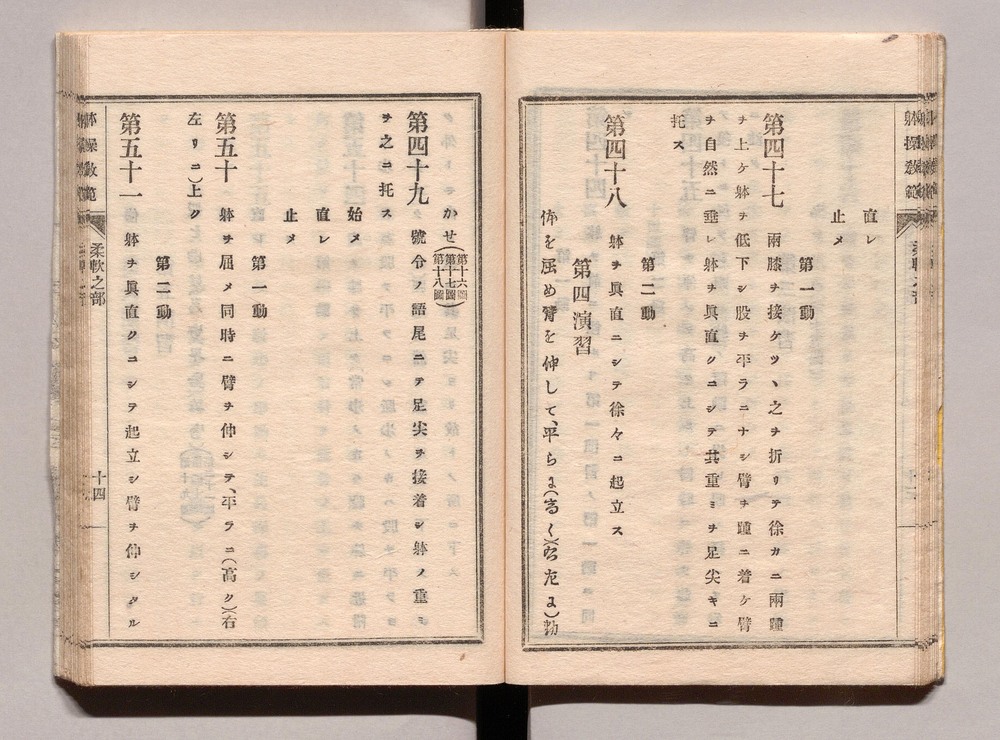 直レ
止メ
第一動
第四十七 兩膝ヲ接ケツヽ之ヲ折リテ徐カニ兩踵
ヲ上ケ躰ヲ低下シ股ヲ平ラニナシ臂ヲ踵ニ着ケ臂
ヲ自然ニ垂レ躰ヲ眞直クニシテ其重ミヲ足尖キニ
托ス
第二動
第四十八 躰ヲ眞直ニシテ徐々ニ起立ス
第四演習
体を屈め臂を伸して、平らに(高く)(右左に)動
かせ(第十六圖第十七圖第十八圖)
第四十九 號令ノ語尾ニテ足尖ヲ接着シ躰ノ重ミ
ヲ之ニ托ス
始メ
直レ
止メ
第一動
第五十 躰ヲ屈メ同時ニ臂ヲ伸シテ、平ラニ(高ク)(右
左リニ)上ク
第二動
第五十一 躰ヲ眞直クニシテ起立シ臂ヲ伸シタル
体操敎範
柔軟之部
十四